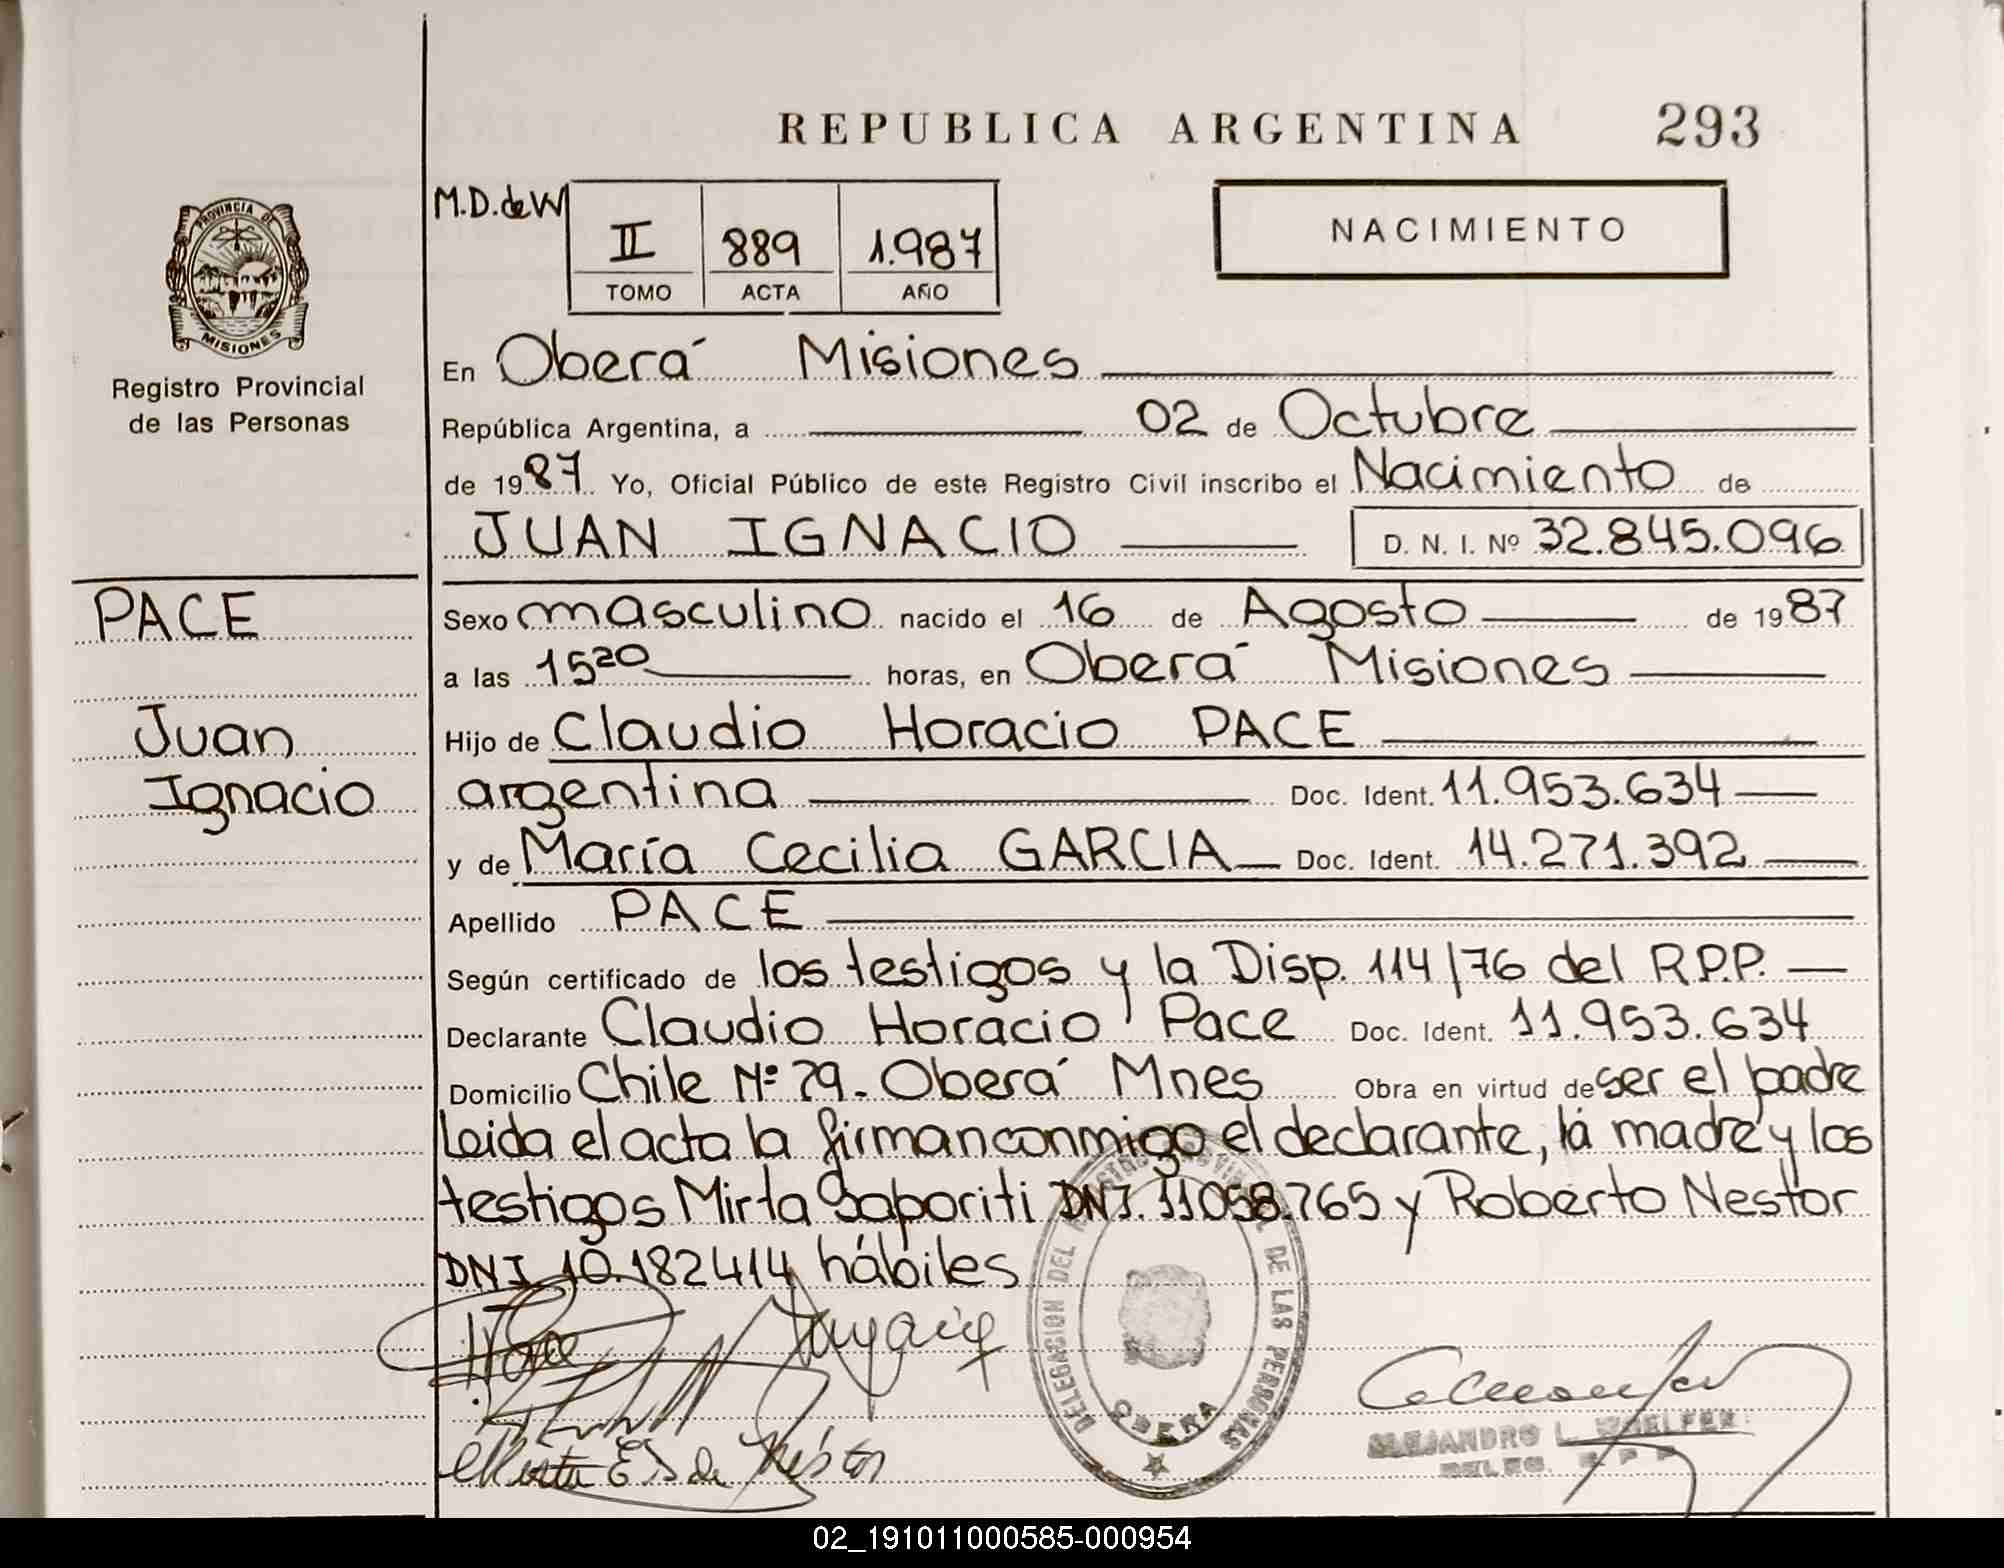 REPUBLICA ARGENTINA 293
PROVINCIA DE
MISIONES
Registro Provincial
de las Personas
M.D.de W
II 889 1.987
TOMO ACTA AÑO
NACIMIENTO
En Oberá Misiones
República Argentina, a 02 de Octubre
de 1987. Yo, Oficial Público de este Registro Civil inscribo el Nacimiento de
JUAN IGNACIO D. N. I. Nº 32.845.096
PACE
Juan
Ignacio
Sexo masculino nacido el 16 de Agosto de 1987
a las 15 20 horas, en Oberá Misiones
Hijo de Claudio Horacio PACE
argentina Doc. Ident. 11.953.634
y de María Cecilia GARCIA Doc. Ident. 14.271.392
Apellido PACE
Según certificado de los testigos y la Disp. 114/76 del R.P.P.
Declarante Claudio Horacio Pace Doc. Ident. 11.953.634
Domicilio Chile Nº 79. Oberá Mnes Obra en virtud de ser el padre
Leida el acta la firman conmigo el declarante, la madre y los
testigos Mirta Saporiti DNI. 11058.765 y Roberto Nestor
DNI 10.182414 hábiles
DELEGACION DEL REGISTRO PROVINCIAL DE LAS PERSONAS
OBERA
ALEJANDRO L.
02_191011000585-000954